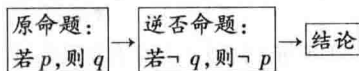 原命题：
若p,则q
→
逆否命题：
若¬q,则¬p
→
结论